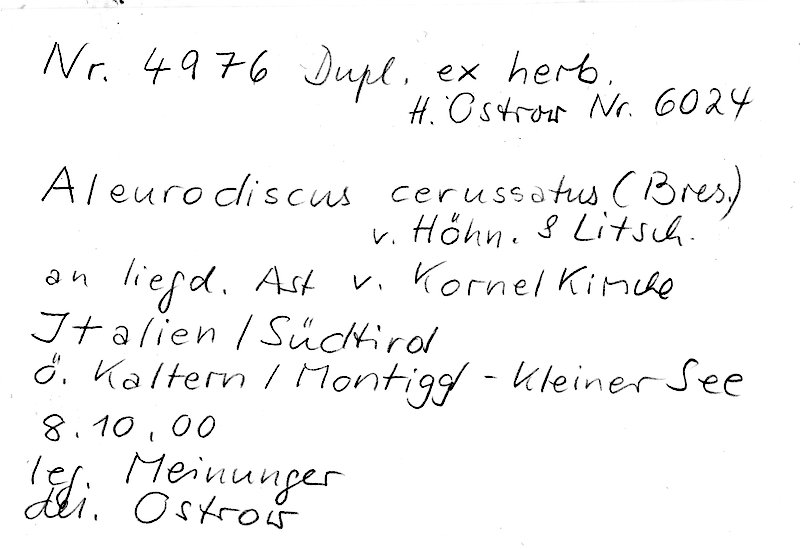 Nr. 4976 Dupl. ex herb.
H. Ostrow Nr. 6024
Aleurodiscus cerussatus (Bres.)
v. Höhn. & Litsch.
an liegd. Ast v. Kornelkirsche
Italien / Südtirol
ö. Kaltern / Montiggl - Kleiner See
8.10.00
leg. Meinunger
det. Ostrow